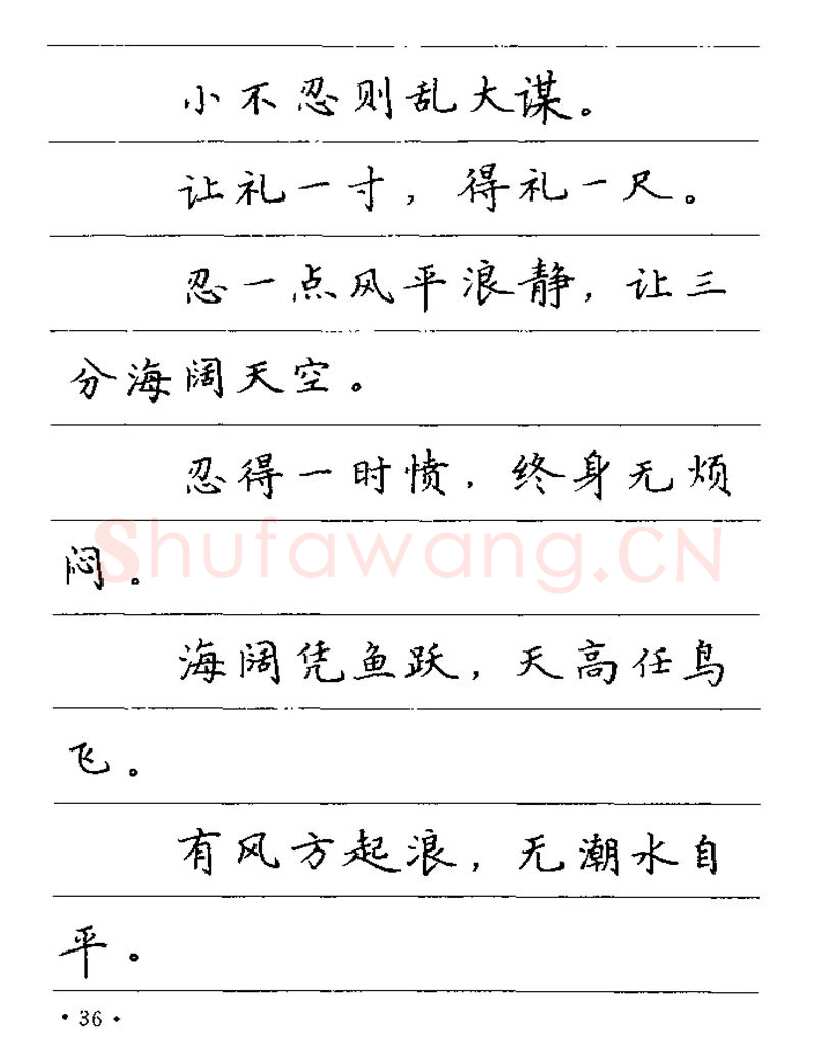 小不忍则乱大谋。
让礼一寸，得礼一尺。
忍一点风平浪静，让三
分海阔天空。
忍得一时愤，终身无烦
闷。
Shufawang.CN
海阔凭鱼跃，天高任鸟
飞。
有风方起浪，无潮水自
平。
·36·